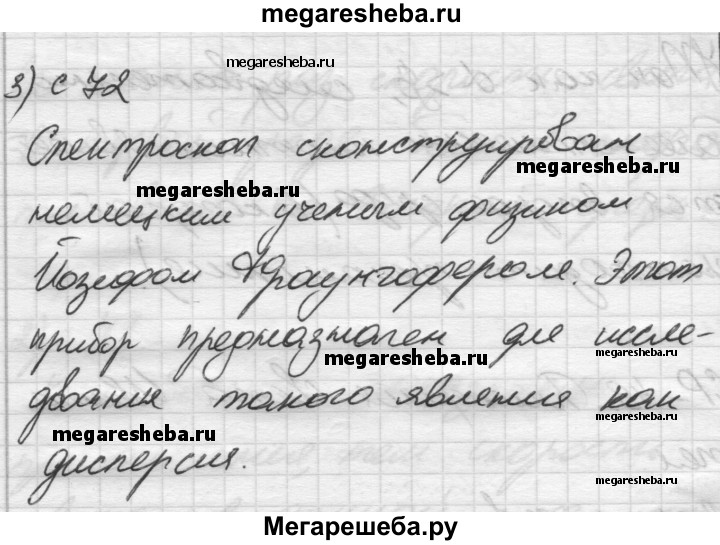 megaresheba.ru
megaresheba.ru
3) с 72
Спектроскоп сконструирован
megaresheba.ru
megaresheba.ru
немецким ученым физиком
Йозефом Фраунгофером. Этот
прибор предназначен для иссле-
megaresheba.ru
megaresheba.ru
дования такого явления как
megaresheba.ru
megaresheba.ru
дисперсия.
megaresheba.ru
Мегарешеба.ру